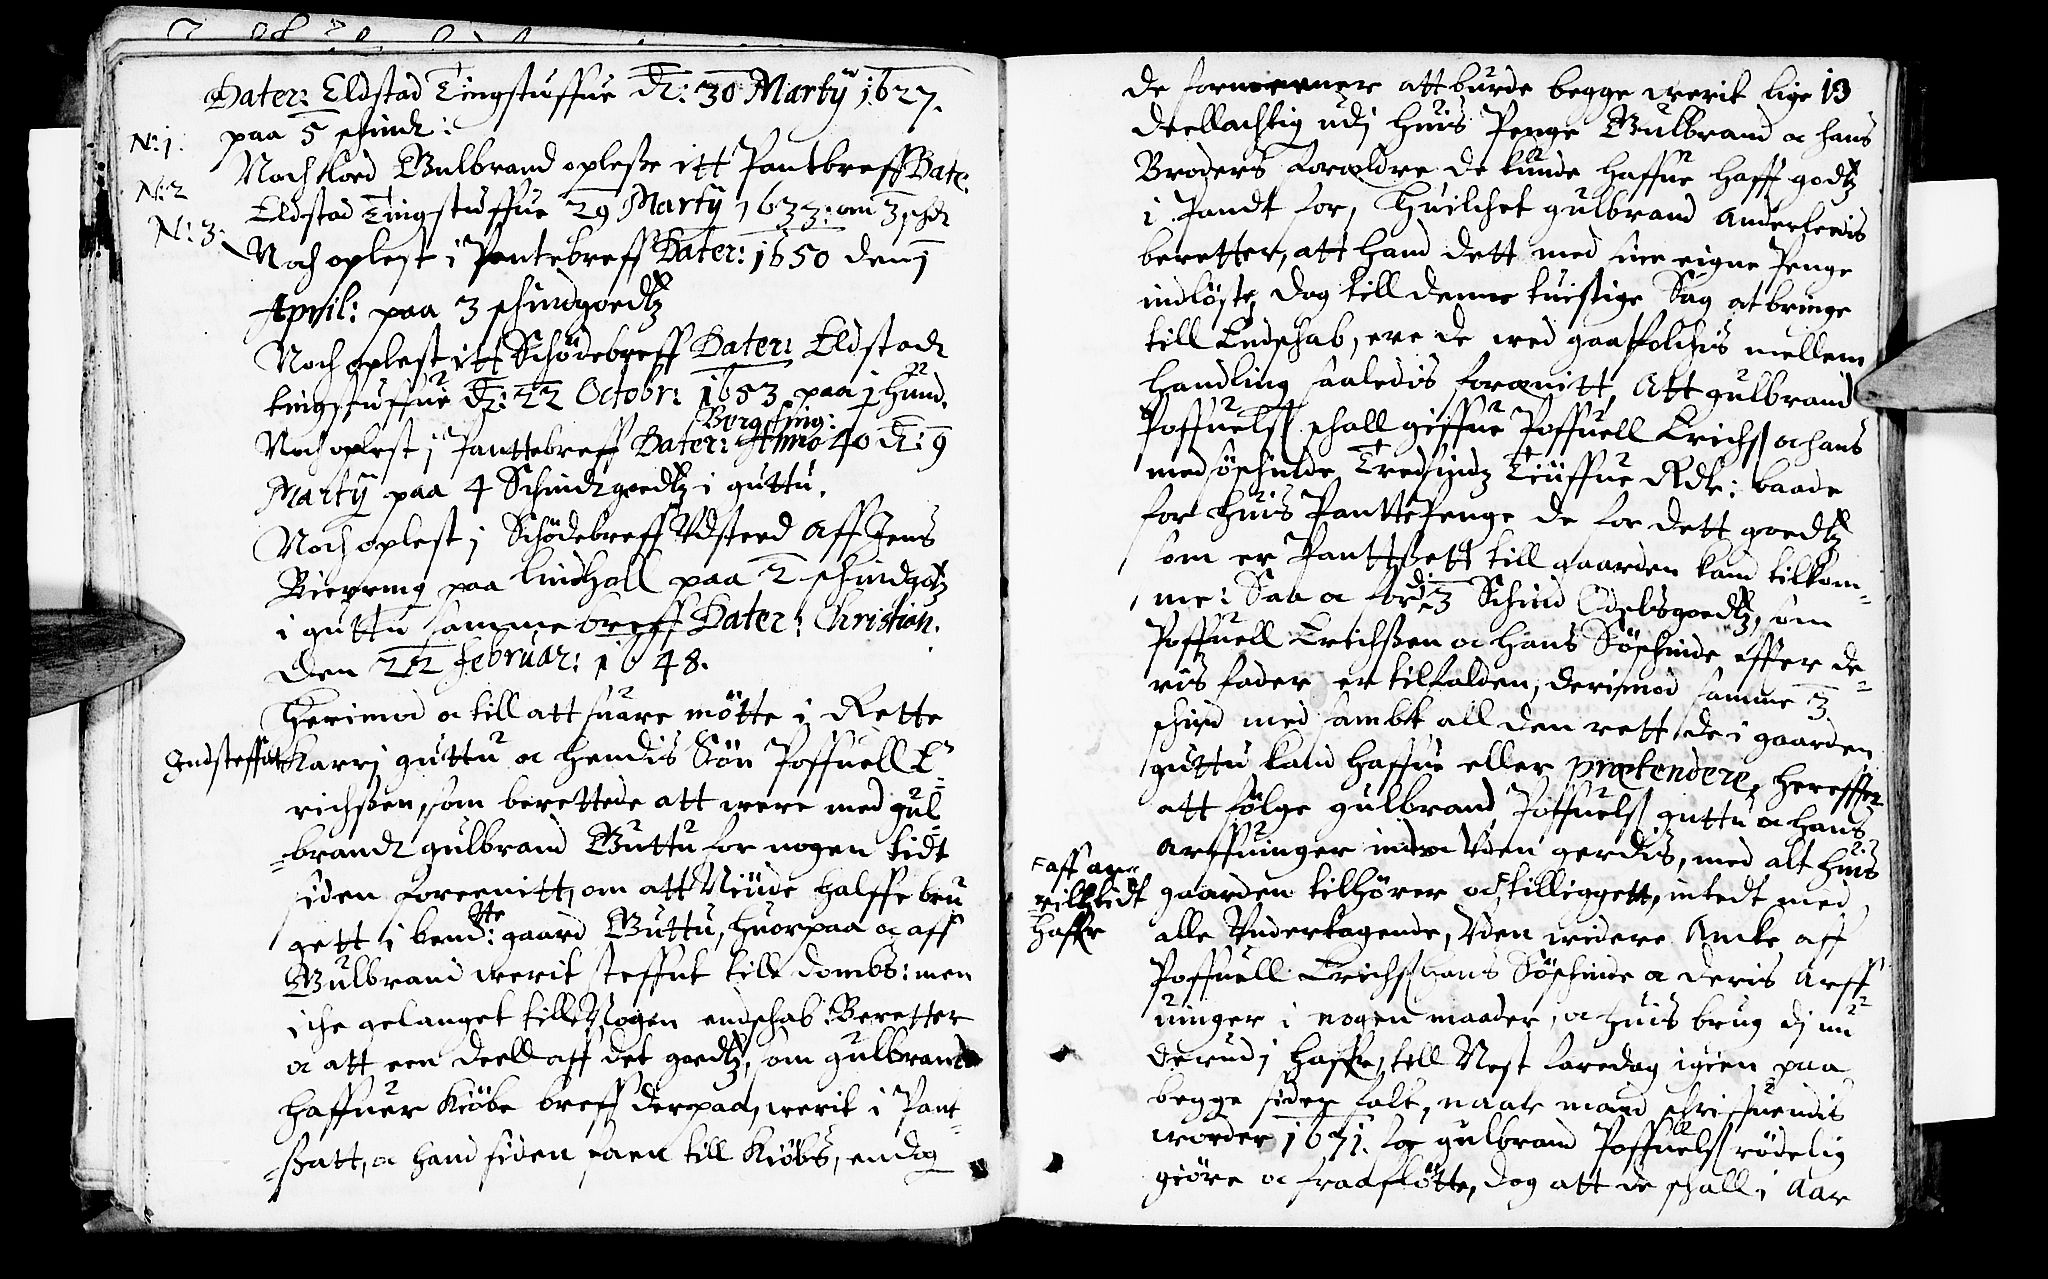 Dater: Eldstad Tingstuffue d: 30 Martij 1627.
N: 1. paa 5 schind:
Noch lod Gulbrand oplesse itt Pantbreff Date:
N: 2 Eldstad Tingstuffue 29 Martij 1633: om 3 schd
N: 3. Noch oplest i Pantebreff Dater: 1650 den 1
April: paa 3 schindgoedtz
Noch oplest itt Schödebreff Dater: Eldstad
tingstuffue d: 22 Octobr: 1653 paa 1 hund.
Borgting:
Noch oplest j Panttebreff Dater: Anno 40 d: 9
Martij paa 4 Schindgoedtz i guttu.
Noch oplest j Schödebreff Vdsteed aff Jens
Bierring paa Lindholl paa 2 schindgotz
i guttu samme breff Dater: Christian.
den 22 februar: 1648.
Herimod oc till att suare mötte i Rette
Indsteffnt Karrj guttu oc hendis Sön Poffuell E-
richssen, som berettede att were med gul-
brand gulbrand Guttu for nogen tidt
siden foreenitt, om att Niude halffe bru
gett i bemd:tte gaard Guttu, huorpaa oc aff
Gulbrand werit steffnt till dombs: men
iche gelanget till Nogen endschab: Beretter
oc att een deell aff det goedtz, som gulbrand
haffuer Kiöbe breff derpaa, werit i Pant-
ssatt, oc hand siden faaen till Kiöbs, endog
13
de formeener att burde begge werit lige
deellachtig udj huis Penge Gulbrand oc hans
Broders Foroldre de kunde haffue hafft godtz
i Pandt for, Huilchet gulbrand anderledis
beretter, att hand dett med sine eigne Penge
indlöste, dog till denne tuistige Sag at bringe
till Endschab, ere de wed gaatfolchis mellem
handling saaledis forenitt, Att gulbrand
Poffuels schall giffue Poffuell Erichs oc hans
medsöschinde Tredsindz Tiuffue Rdr: baade
for huis PanttePenge de for dett goedtz
som er Panttssett till gaarden kand tilkom-
me: Saa oc for di 3 Schind Odelsgoedtz, som
Poffuell Erichssen oc hans Söschinde effter de-
ris fader er tilfalden, derimod samme 3
schind med sambt all den rett de i gaarden
guttu kand haffue eller prætendere, hereffter
att fölge gulbrand Poffuels guttu oc hans
arffuinger inden Vden gerdis, med alt huis
gaarden tilhörer oc tilliggett, intedt med
= aff arrilltidt haffr
alle Vndertagende, Vden widere Anke aff
Poffuell Erichs hans Söschinde oc deris Arff
uinger i nogen maader, oc huis brug dj nu
derudj haffr, till Nest faredag igien paa
begge sider falt, naar mand schriffuendis
worder 1671. for gulbrand Poffuels rödelig
giöre oc fraaflötte, dog att de schall i Aar